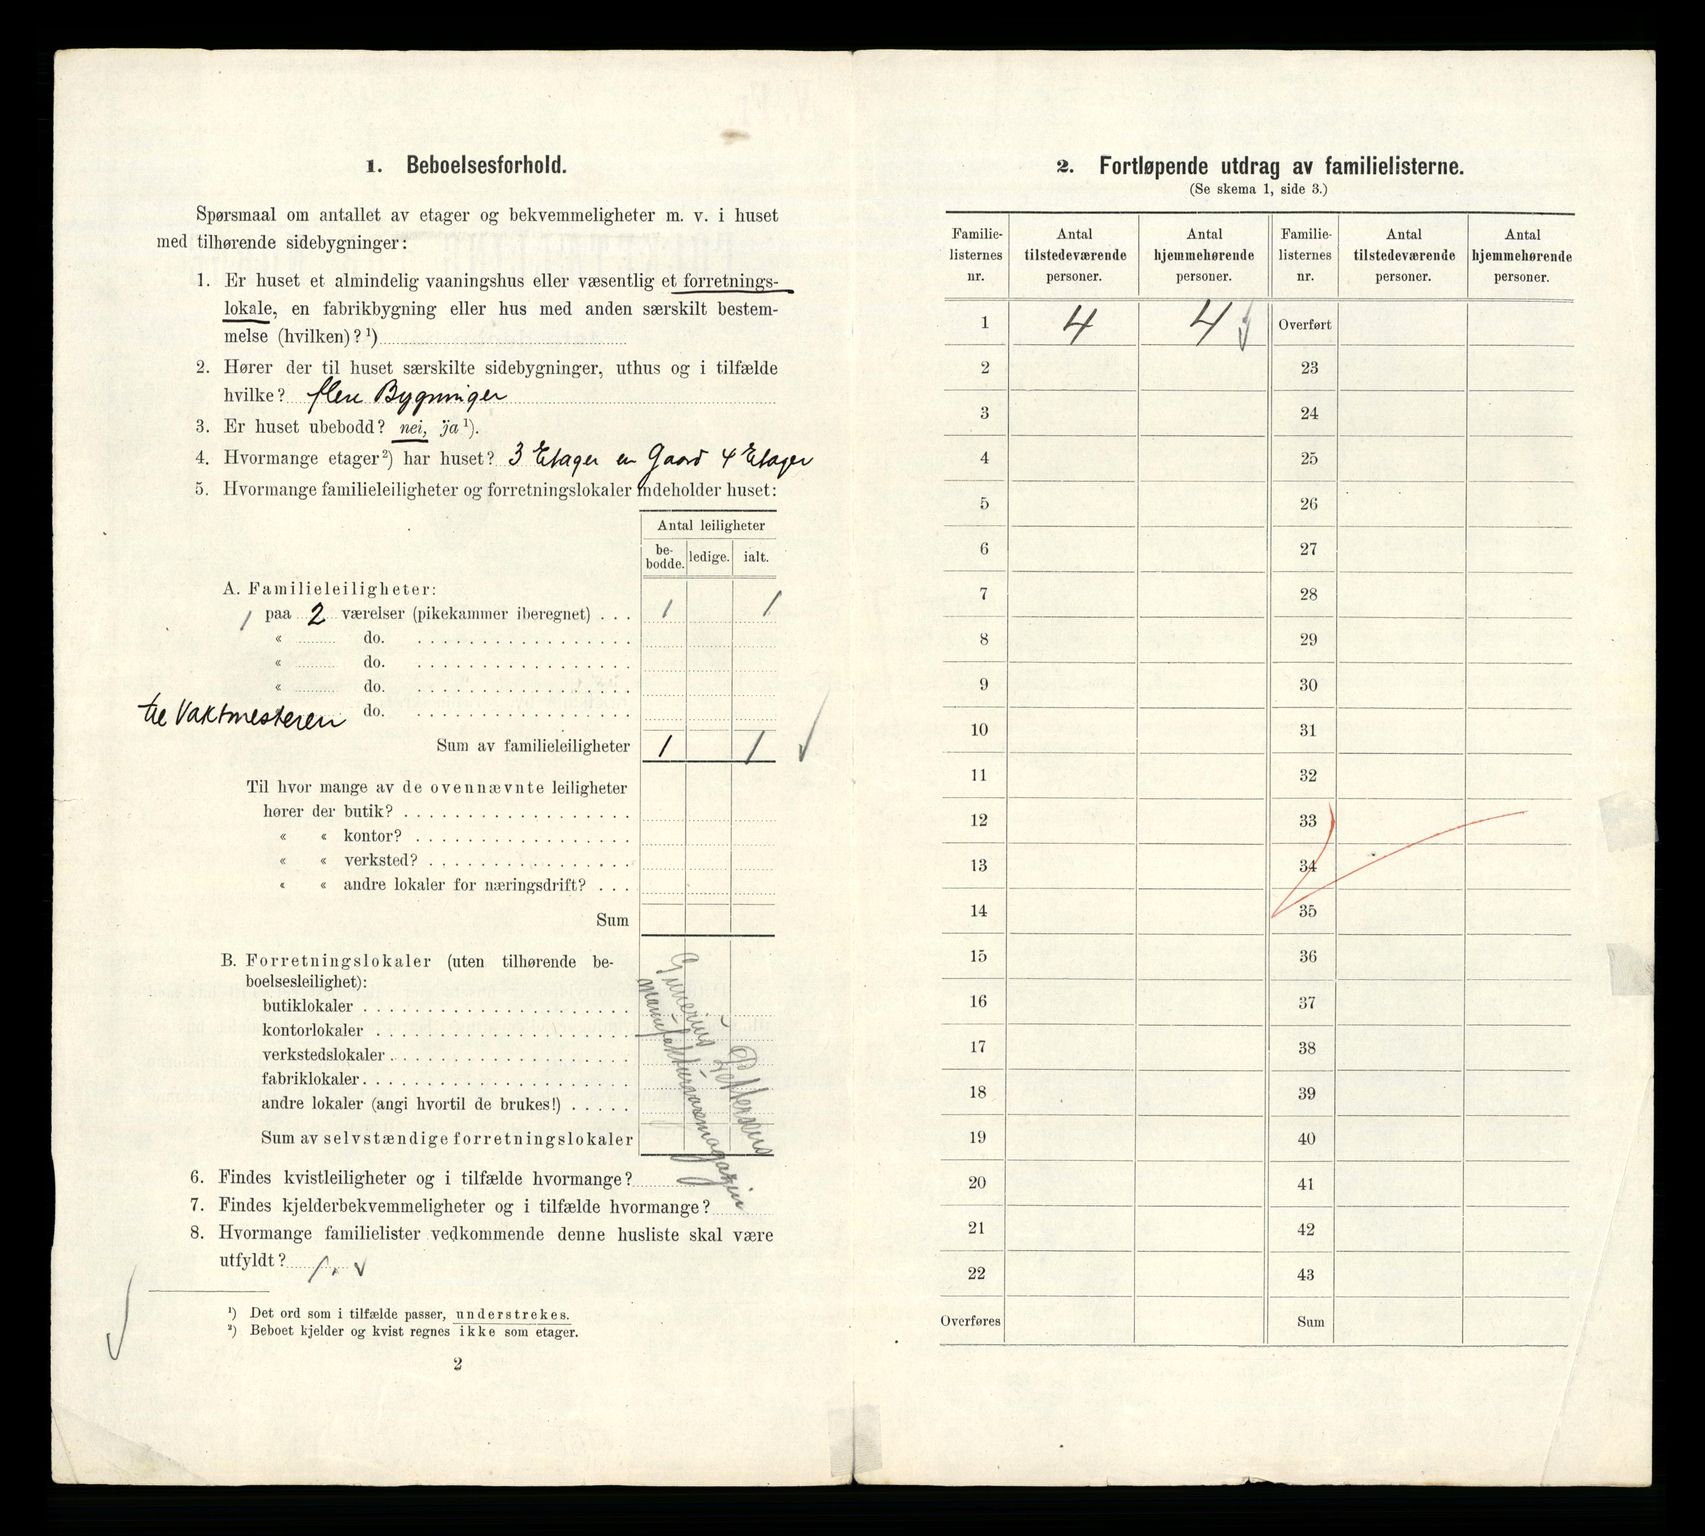 1. Beboelsesforhold.
Spørsmaal om antallet av etager og bekvemmeligheter m. v. i huset
med tilhørende sidebygninger:
1. Er huset et almindelig vaaningshus eller væsentlig et forretnings-
lokale, en fabrikbygning eller hus med anden særskilt bestem-
melse (hvilken)? ¹)
2. Hører der til huset særskilte sidebygninger, uthus og i tilfælde
hvilke? flere Bygninger
3. Er huset ubebodd? nei, ja ¹).
4. Hvormange etager ²) har huset? 3 Etager en Gaard 4 Etager
5. Hvormange familieleiligheter og forretningslokaler indeholder huset:
Antal leiligheter
be-bodde. ledige. ialt.
A. Familieleiligheter:
1 paa 2 værelser (pikekammer iberegnet) . . . 1 1
« do.
« do.
« do.
til Vaktmesteren do.
Sum av familieleiligheter 1 1
Til hvor mange av de ovennævnte leiligheter
hører der butik?
« « kontor?
« « verksted?
« « andre lokaler for næringsdrift? . . .
Sum
B. Forretningslokaler (uten tilhørende be-
boelsesleilighet):
butiklokaler
kontorlokaler
verkstedslokaler
fabriklokaler
andre lokaler (angi hvortil de brukes!)
Sum av selvstændige forretningslokaler
Gunerius Pettersens
manufakturvaremagazin
6. Findes kvistleiligheter og i tilfælde hvormange?
7. Findes kjelderbekvemmeligheter og i tilfælde hvormange?
8. Hvormange familielister vedkommende denne husliste skal være
utfyldt? 1.
¹) Det ord som i tilfælde passer, understrekes.
²) Beboet kjelder og kvist regnes ikke som etager.
2
2. Fortløpende utdrag av familielisterne.
(Se skema 1, side 3.)
Familie-listernes nr. Antal tilstedeværende personer. Antal hjemmehørende personer. Familie-listernes nr. Antal tilstedeværende personer. Antal hjemmehørende personer.
1 4 4 Overført
2 23
3 24
4 25
5 26
6 27
7 28
8 29
9 30
10 31
11 32
12 33
13 34
14 35
15 36
16 37
17 38
18 39
19 40
20 41
21 42
22 43
Overføres Sum